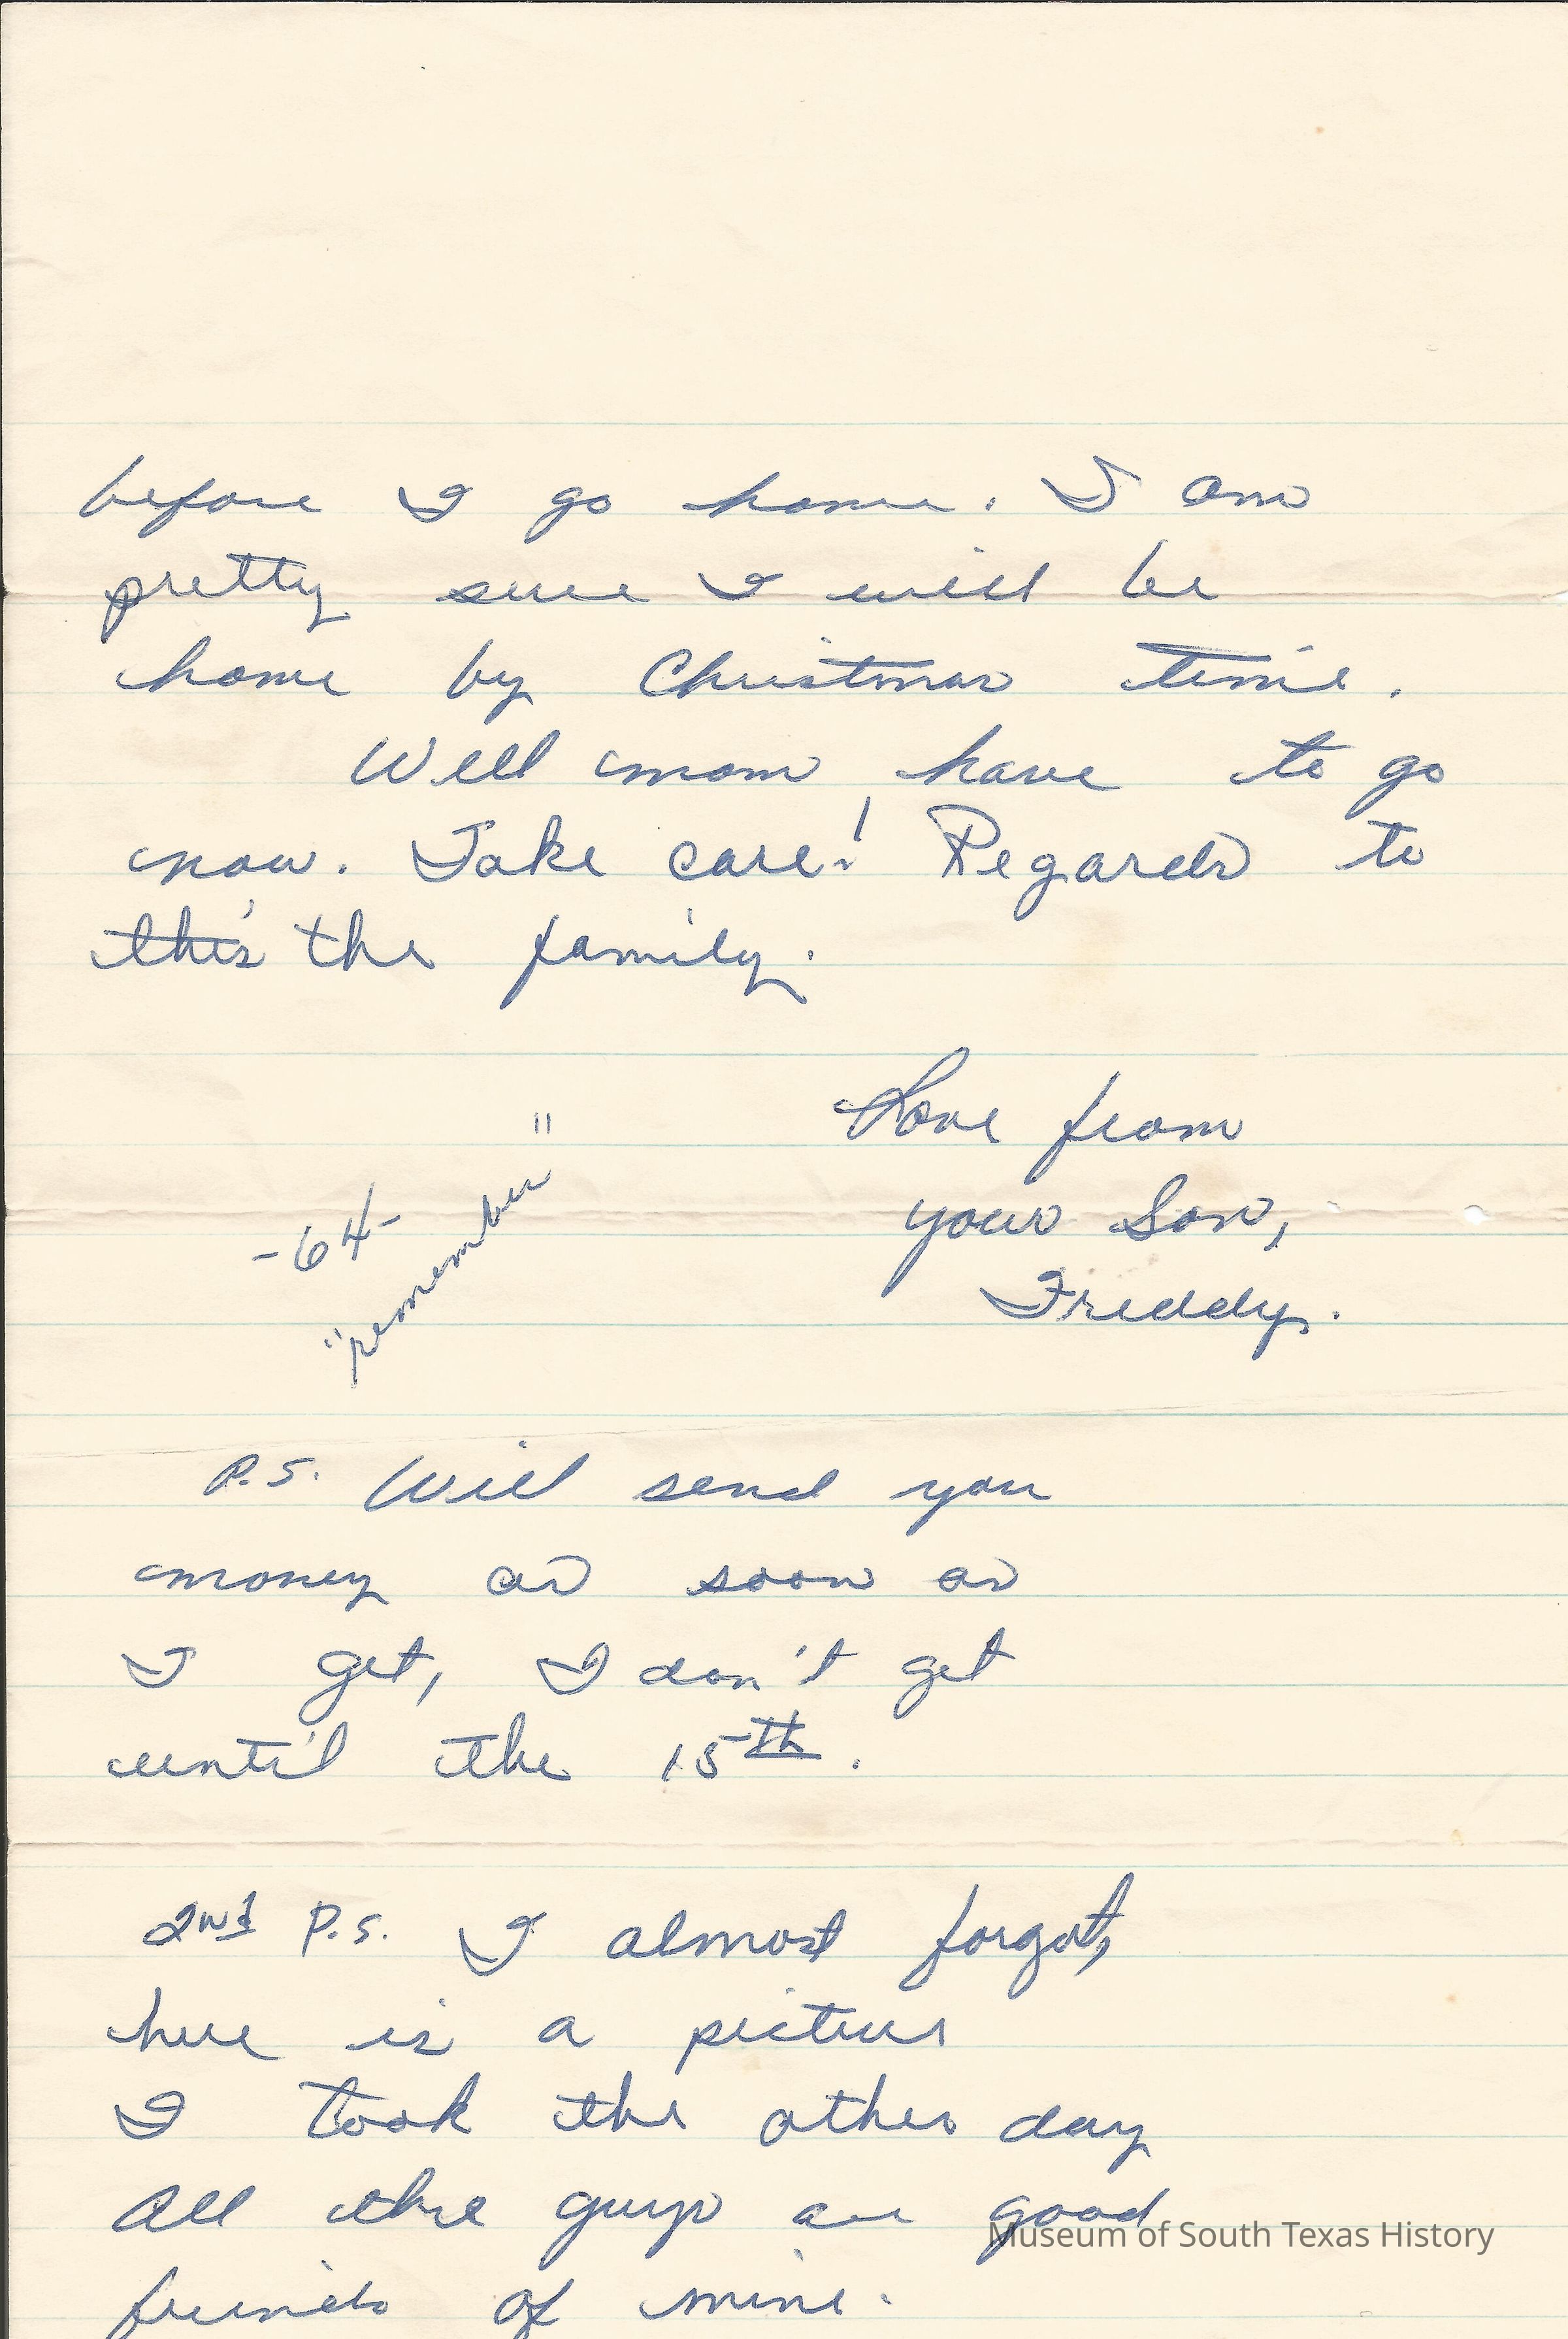 before I go home. I am
pretty sure I will be
home by Christmas time.
Well mom have to go
now. Take care! Regards to
this the family.
Love from
your Son,
Freddy.
-64-
"remember"
P.S. Will send you
money as soon as
I get, I don't get
until the 15th.
2nd P.S. I almost forgot,
here is a picture
I took the other day
All thre guys are good
friends of mine.
Museum of South Texas History